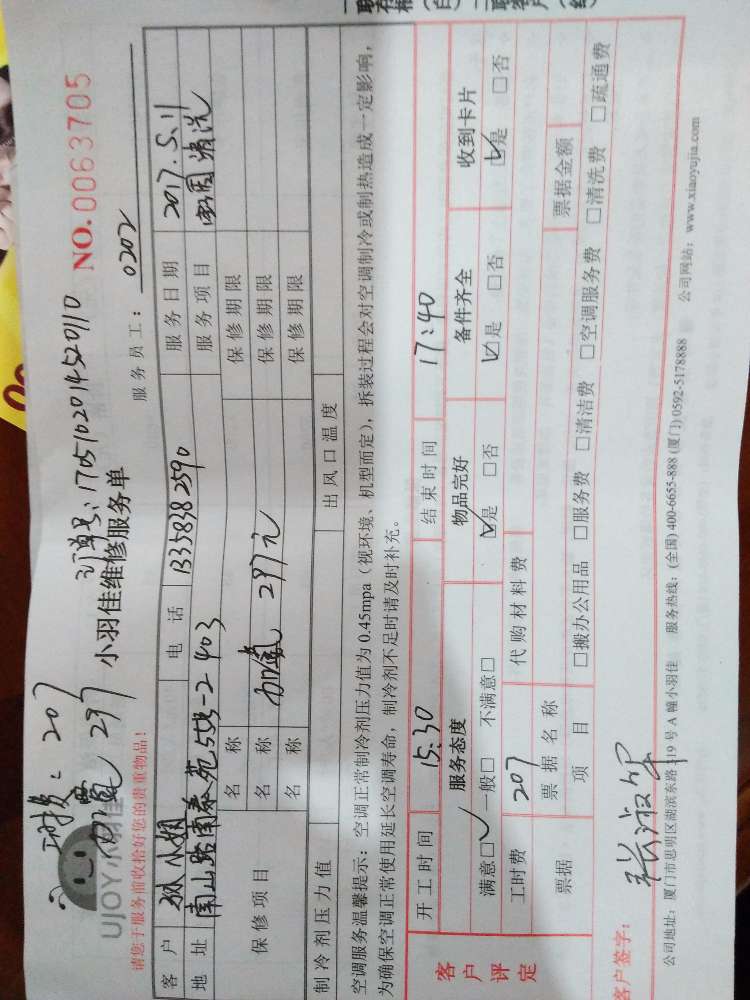 订单号:1705102014520110
207
297
UJOY小羽佳
小羽佳维修服务单
NO.0063705
请您于服务前收拾好您的贵重物品!
服务员工: 0202
客户 孙小姐 电话 13358382590 服务日期 2017.5.11
地址 南山路南泰苑55号-2 403 服务项目 清洗
保修项目
名称 保修期限
名称 加氟 297元 保修期限
名称 保修期限
制冷剂压力值 出风口温度
空调服务温馨提示:空调正常制冷剂压力值为0.45mpa(视环境、机型而定),拆装过程会对空调制冷或制热造成一定影响,
为确保空调正常使用延长空调寿命,制冷剂不足时请及时补充。
客户评定
开工时间 15:30 结束时间 17:40
服务态度 物品完好 备件齐全 收到卡片
满意□✓ 一般□ 不满意□ ☑是 □否 ☑是 □否 ☑是 □否
工时费 207 代购材料费
票据 票据名称 票据金额
项目 □搬办公用品 □服务费 □清洁费 □空调服务费 □清洗费 □疏通费
客户签字: 张淑华
公司地址:厦门市思明区湖滨东路319号A幢小羽佳 服务热线:(全国)400-6655-888 (厦门)0592-5178888 公司网站:www.xiaoyujia.com